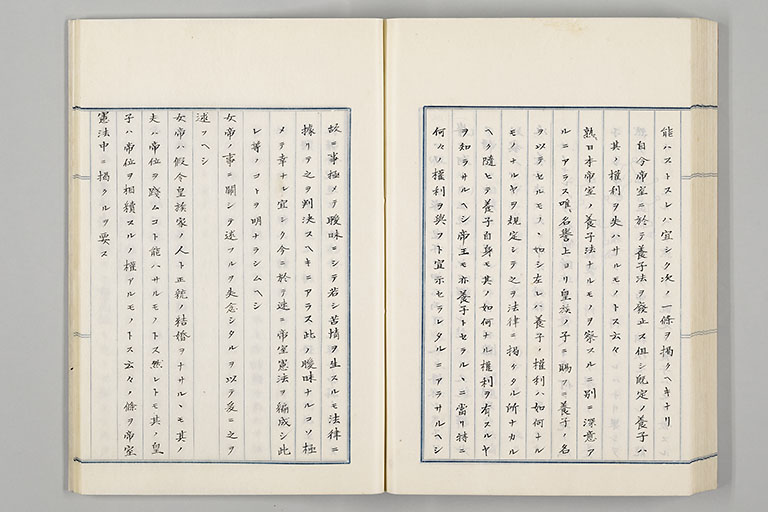 能ハストスレハ宜シク次ノ一條ヲ掲クヘキナリ
自今帝室ニ於テ養子法ヲ廢止ス但シ既定ノ養子ハ
其ノ權利ヲ失ハサルモノトス云々
熟日本帝室ノ養子法ナルモノヲ察スルニ別ニ深意ア
ルニアラス唯名譽上ヨリ皇族ノ子ニ賜フニ養子ノ名
ヲ以テセルモノヽ如シ左レハ養子ノ權利ハ如何ナル
モノナルヤヲ規定シテ之ヲ法律ニ掲ケタル所ナカル
ヘク隨ヒテ養子自身モ其ノ如何ナル權利ヲ有スルヤ
ヲ知ラサルヘシ帝王モ亦養子トセラルヽニ當リ特ニ
何々ノ權利ヲ與フト宣示セラレタルニアラサルヘシ
故ニ事極メテ曖昧ニシテ若シ苦情ヲ生スルモ法律ニ
據リテ之ヲ判決スヘキニアラス此ノ曖昧ナルコソ極
メテ幸ナレ宜シク今ニ於テ速ニ帝室憲法ヲ編成シ此
レ等ノコトヲ明ナラシムヘシ
女帝ノ事ニ關シテ述フルヲ失念シタルヲ以テ爰ニ之ヲ
述フヘシ
女帝ハ假令皇族家ノ人ト正統ノ結婚ヲナサルヽモ其ノ
夫ハ帝位ヲ踐ムコト能ハサルモノトス然レトモ其ノ皇
子ハ帝位ヲ相續スルノ權アルモノトス云々ノ條ヲ帝室
憲法中ニ掲クルヲ要ス